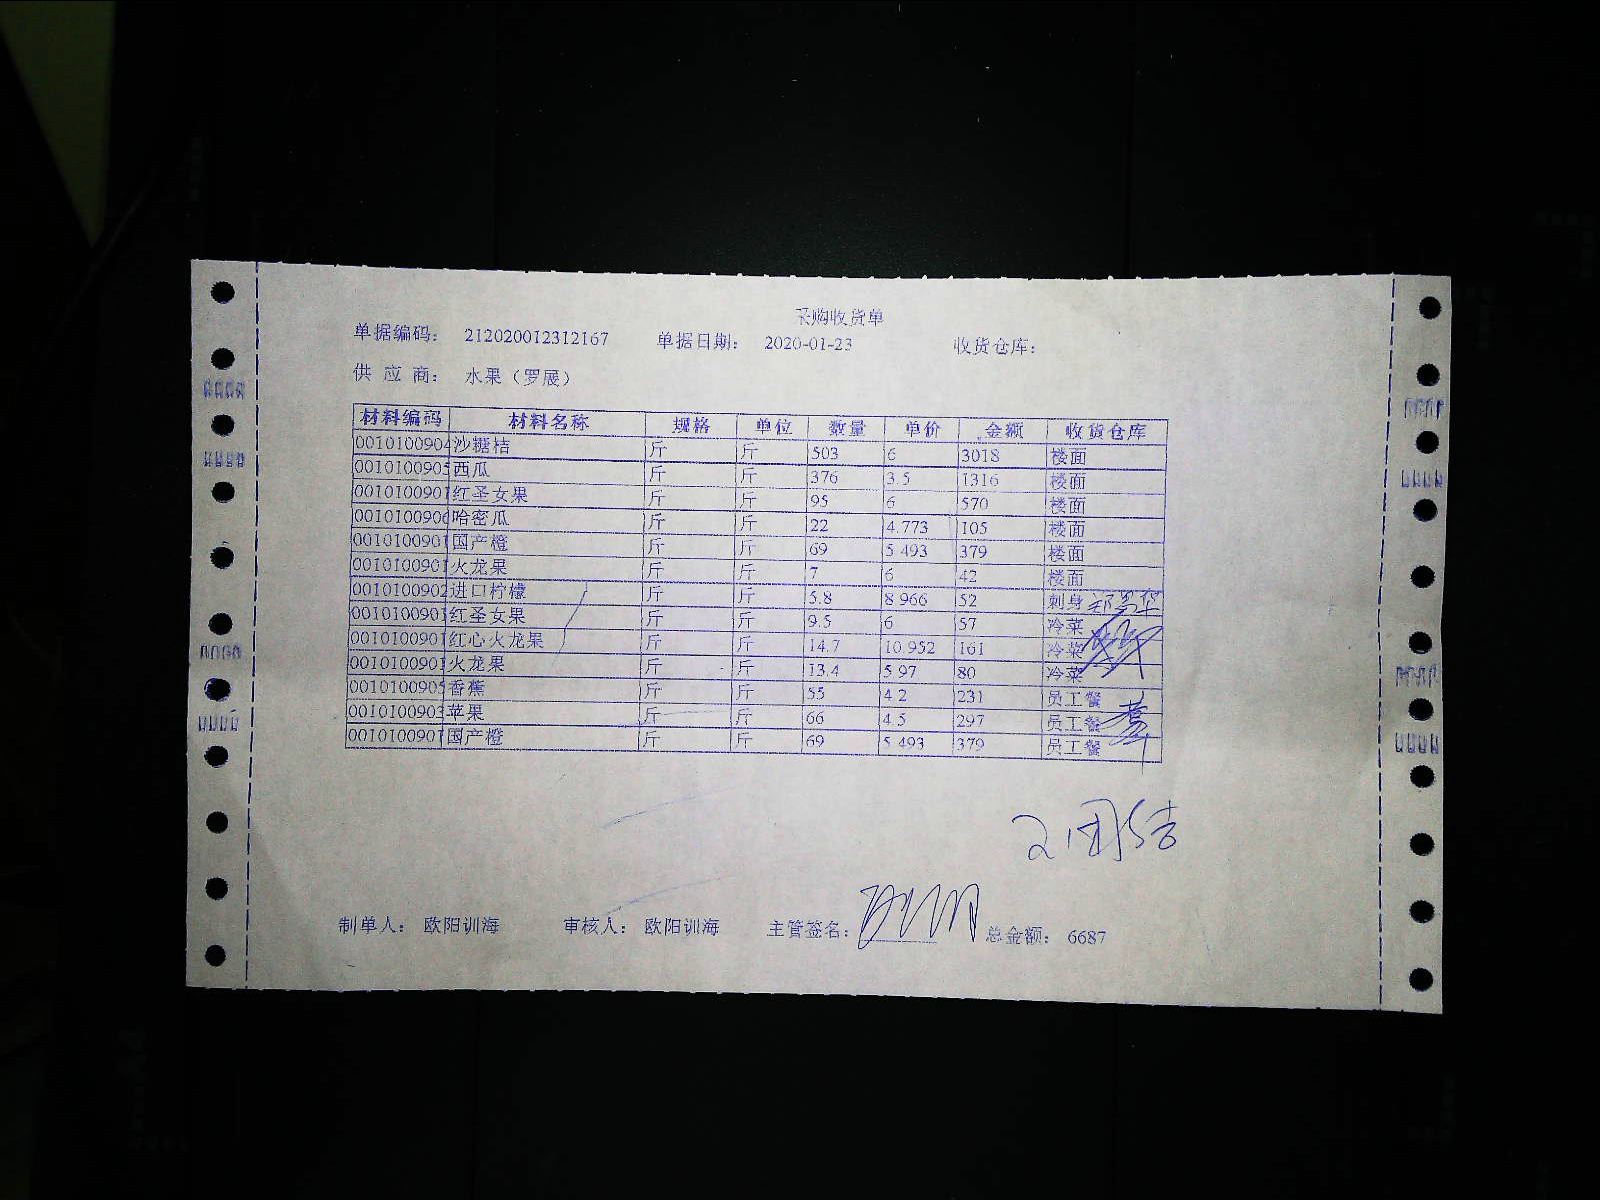 采购收货单
单据编码： 212020012312167 单据日期： 2020-01-23 收货仓库：
供 应 商： 水果（罗展）
材料编码 材料名称 规格 单位 数量 单价 金额 收货仓库
0010100904 沙糖桔 斤 斤 503 6 3018 楼面
0010100905 西瓜 斤 斤 376 3.5 1316 楼面
0010100901 红圣女果 斤 斤 95 6 570 楼面
0010100906 哈密瓜 斤 斤 22 4.773 105 楼面
0010100901 国产橙 斤 斤 69 5.493 379 楼面
0010100901 火龙果 斤 斤 7 6 42 楼面
0010100902 进口柠檬 斤 斤 5.8 8.966 52 刺身
0010100901 红圣女果 斤 斤 9.5 6 57 冷菜
0010100901 红心火龙果 斤 斤 14.7 10.952 161 冷菜
0010100901 火龙果 斤 斤 13.4 5.97 80 冷菜
0010100905 香蕉 斤 斤 55 4.2 231 员工餐
0010100903 苹果 斤 斤 66 4.5 297 员工餐
0010100901 国产橙 斤 斤 69 5.493 379 员工餐
制单人： 欧阳训海 审核人： 欧阳训海 主管签名： 总金额： 6687